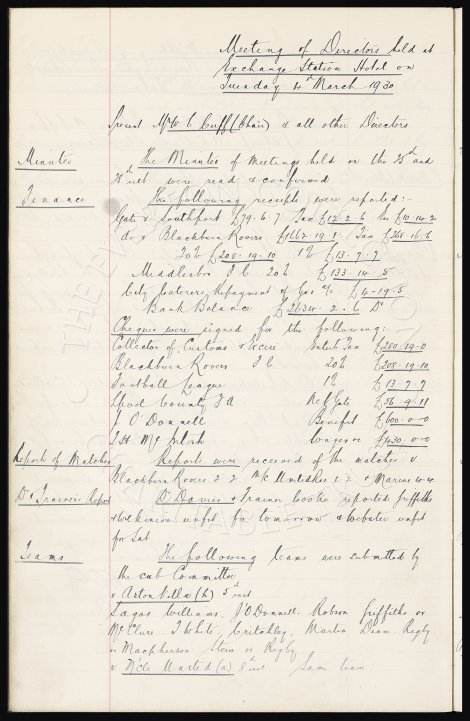 Meeting of Directors held at
Exchange Station Hotel on
Tuesday 4th March 1930
Present Mr W C Cuff (Chair) & all other Directors
Minutes The Minutes of meetings held on the 25th and
28th inst were read & confirmed
Finance The following receipts were reported:-
Gate v Southport 79.6.7 Tax £12.2.6 £10.14.2
do v Blackburn Rovers £1662.19.1 Tax £268.16.6
20% £208.19.10 1% £13.7.7
Meddlesbro F C 20% £133.14.5
City Caterers Repayment of Gas a/c £4.19.5
Bank Balance £2634.2.6 Dr
Cheques were signed for the following:-
Collector of Customs & Excise Entert Tax £280.19.0
Blackburn Rovers F C 20% £208.19.10
Football League 1% £13.7.7
Lpool County F A Ref Gate £56.9.11
J O'Donnell Benefit £600.0.0
Wages &c £430.0.0
Reports of Matches Reports were received of the matches v
Blackburn Rovers 2.2 M/c United Res 1.2 & Marine 4.4.
Dr & Trainers Report Dr Davies & Trainer Cooke reported Griffiths
& Wilkinson unfit for tomorrow & Webster unfit
for Sat
Teams The following teams were submitted by
the sub Committee
v Aston Villa (h) 5th inst
Sagar Williams. J O'Donnell. Robson Griffiths or
McClure. T White. Critchley. Martin Dean. Rigby
or Macpherson Stein or Rigby
v N'cle United (a) 8th inst Same team